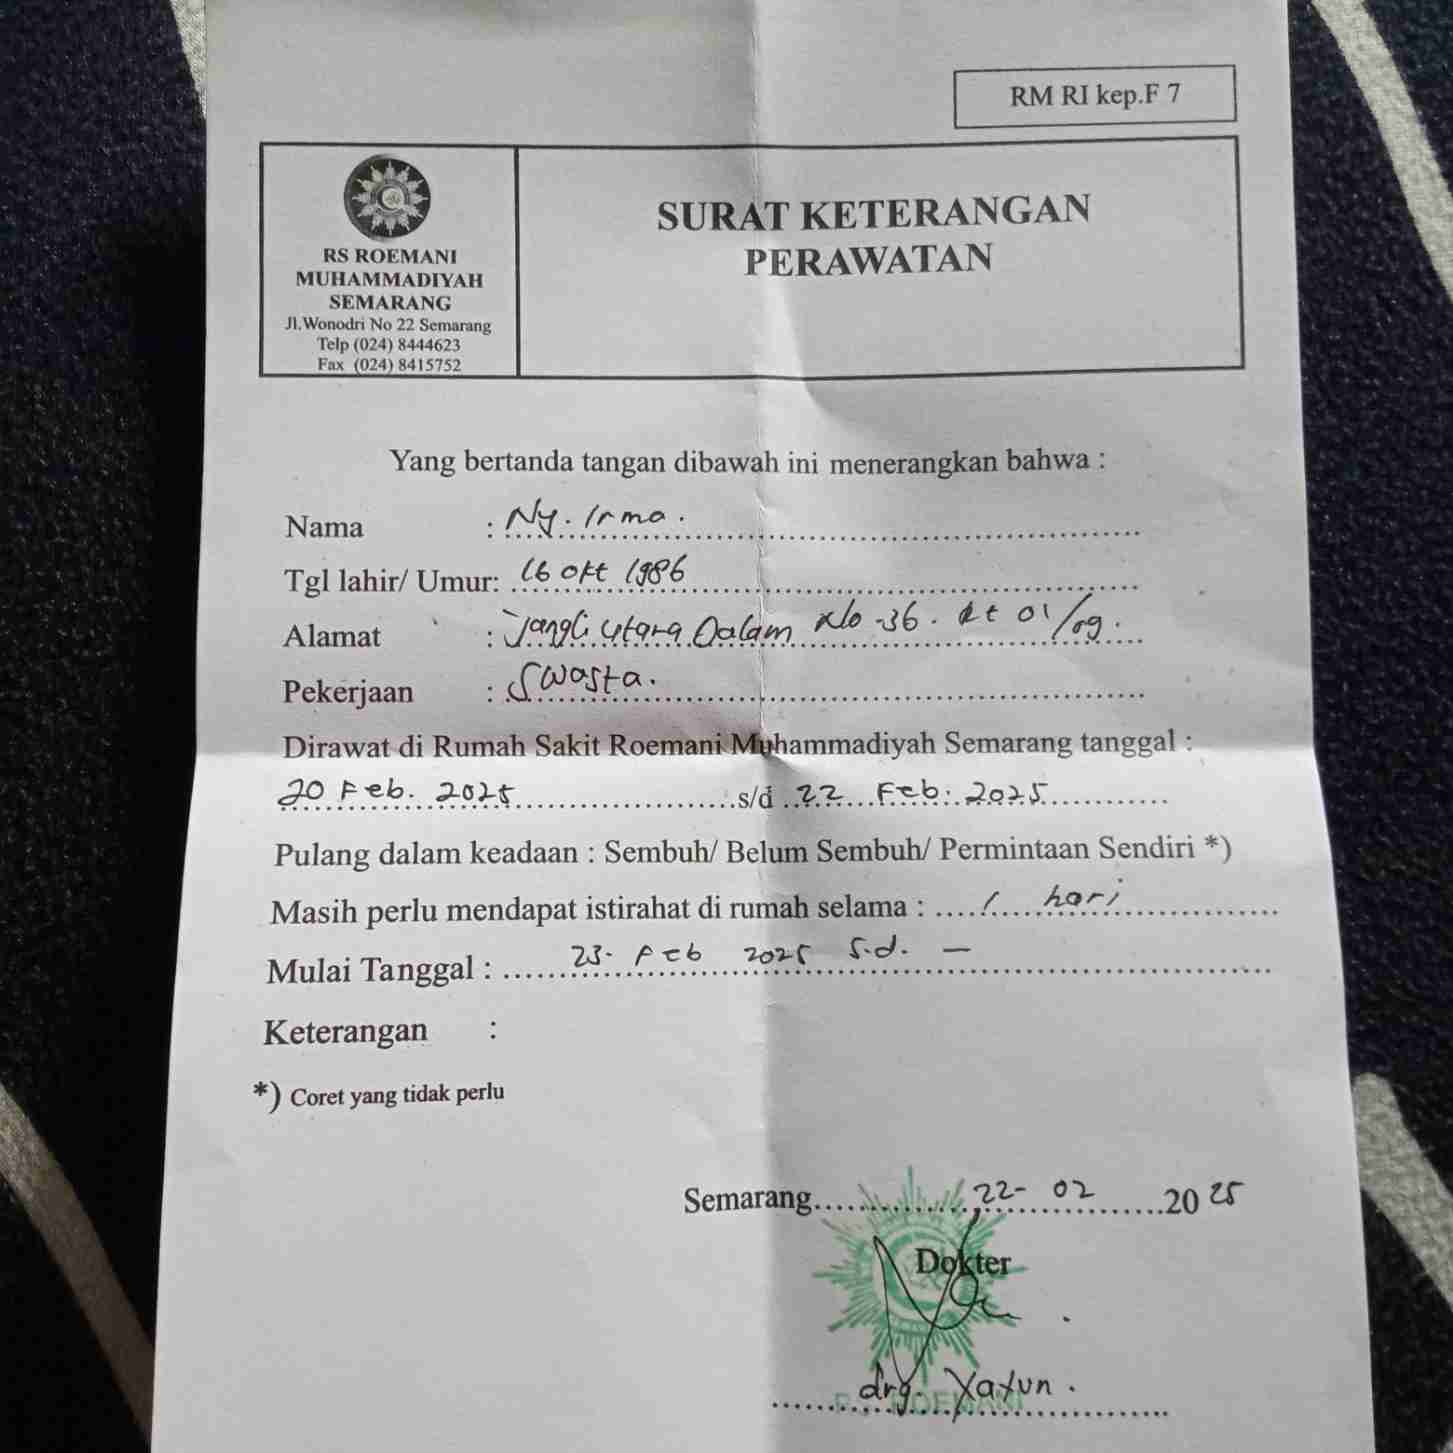 RM RI kep.F 7
RS ROEMANI
MUHAMMADIYAH
SEMARANG
Jl.Wonodri No 22 Semarang
Telp (024) 8444623
Fax (024) 8415752
SURAT KETERANGAN
PERAWATAN
Yang bertanda tangan dibawah ini menerangkan bahwa :
Nama : Ny. Irma.
Tgl lahir/ Umur: 16 Okt 1986
Alamat : Jangli Utara Dalam No. 36. Rt 01/09.
Pekerjaan : Swasta.
Dirawat di Rumah Sakit Roemani Muhammadiyah Semarang tanggal :
20 Feb. 2025 s/d 22 Feb. 2025
Pulang dalam keadaan : Sembuh/ Belum Sembuh/ Permintaan Sendiri *)
Masih perlu mendapat istirahat di rumah selama : 1 hari
Mulai Tanggal : 23. Feb 2025 s.d. —
Keterangan :
*) Coret yang tidak perlu
Semarang 22- 02 2025
Dokter
drg. Yayun.
ROEMANI